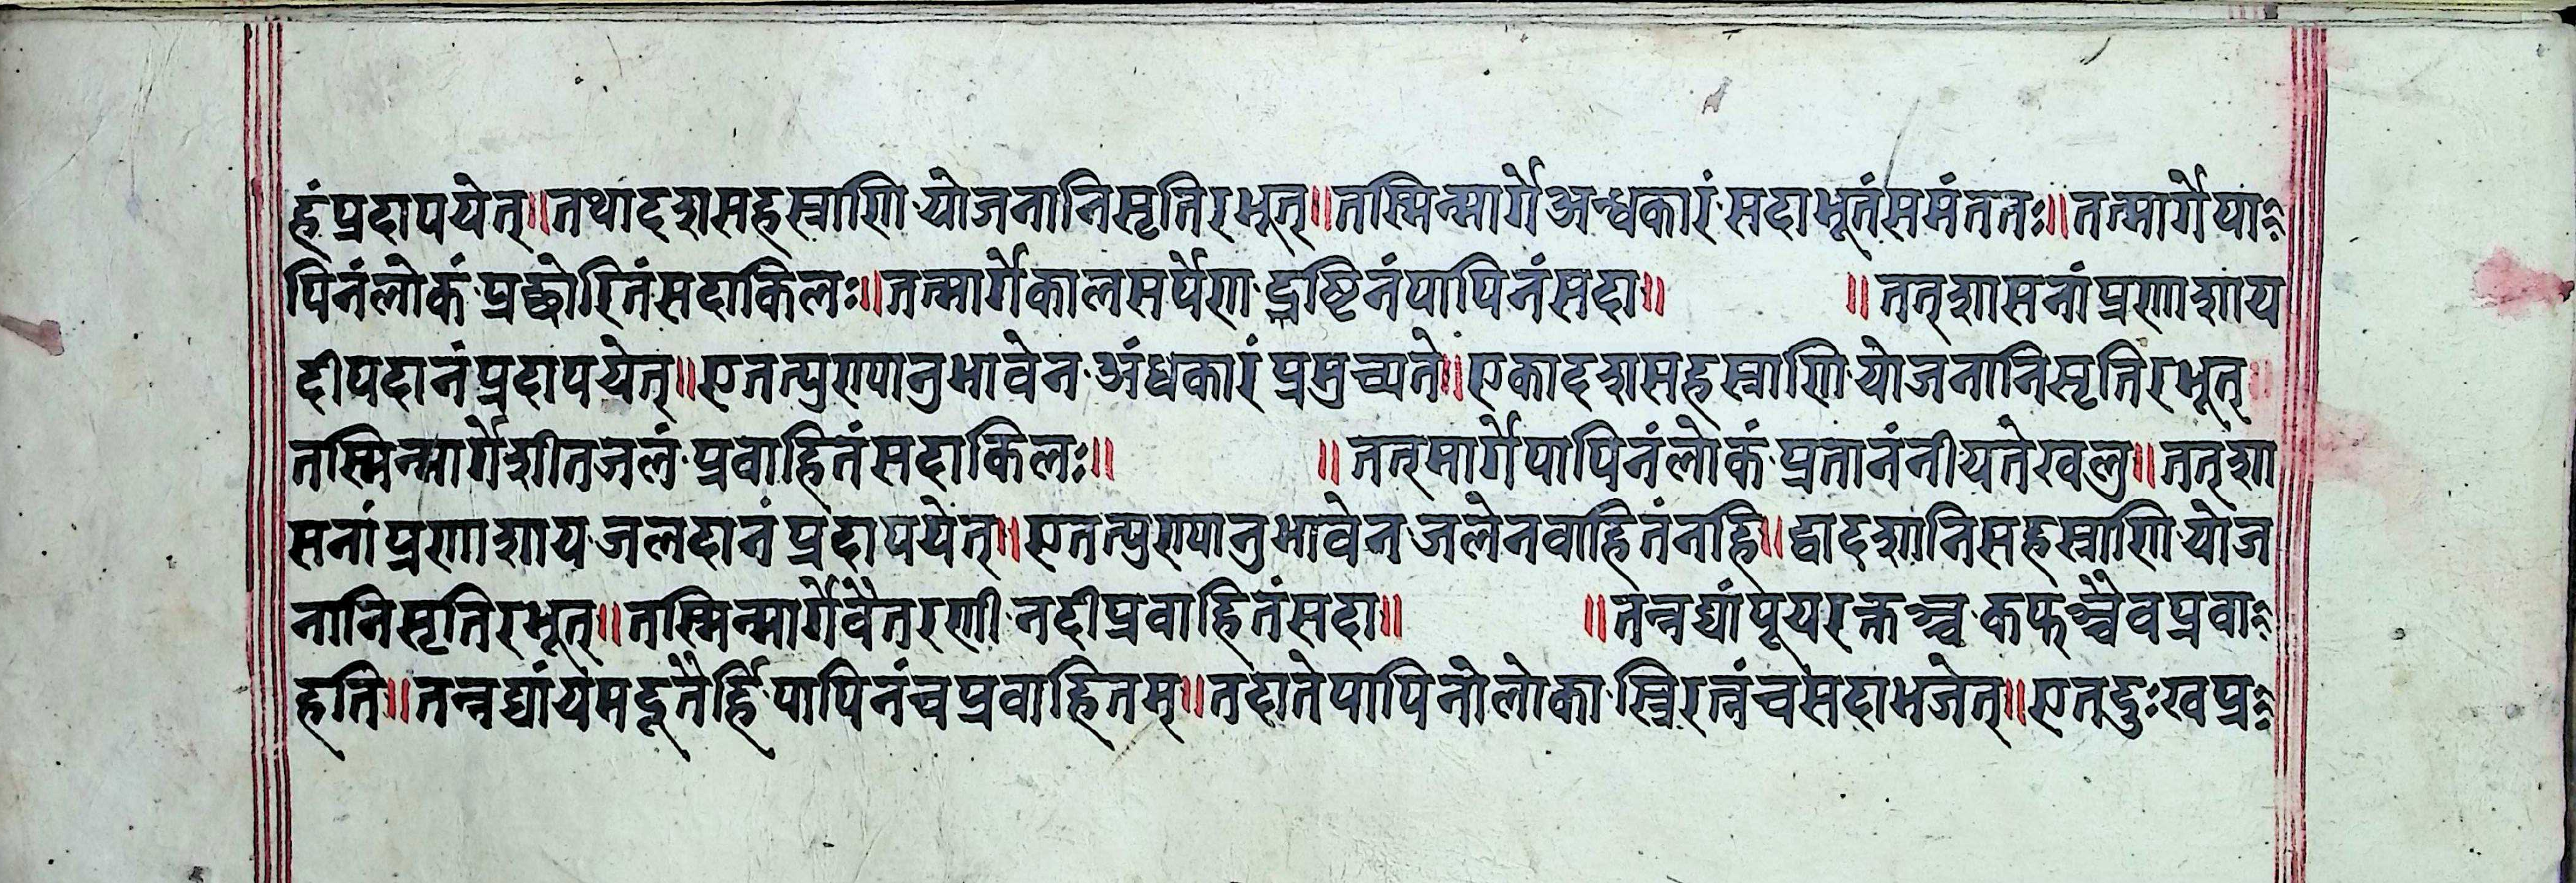 हं प्रदापयेत्॥तथादशसहस्राणि योजनानिसृतिरभूत्॥तस्मिन्मार्गे अन्धकारं सदाभूतं समंततः॥तन्मार्गे पा
पिनं लोकं प्रछोरितं सदाकिलः॥तन्मार्गे कालसर्पेण द्रष्टिनं पापिनं सदा॥ ॥तत्शासनां प्रणाशाय
दीपदानं प्रदापयेत्॥एतत्पुण्यानुभावेन अंधकारं प्रमुच्यते॥एकादशसहस्राणि योजनानिसृतिरभूत्॥
तस्मिन्मार्गे शीतजलं प्रवाहितं सदाकिलः॥ ॥तत्मार्गे पापिनं लोकं प्रतानं नीयते खलु॥तत्शा
सनां प्रणाशाय जलदानं प्रदापयेत्॥एतत्पुण्यानुभावेन जलेन वाहितं नहि॥द्वादशानिसहस्राणि योज
नानिसृतिरभूत्॥तस्मिन्मार्गे वैतरणी नदीप्रवाहितं सदा॥ ॥तन्नद्यां पूयरक्तञ्च कफञ्चैव प्रवा
हति॥तन्नद्यां यमदूतैर्हि पापिनं च प्रवाहितम्॥तदाते पापिनो लोका स्त्रिरत्नं च सदाभजेत्॥एतद्दुःखप्र